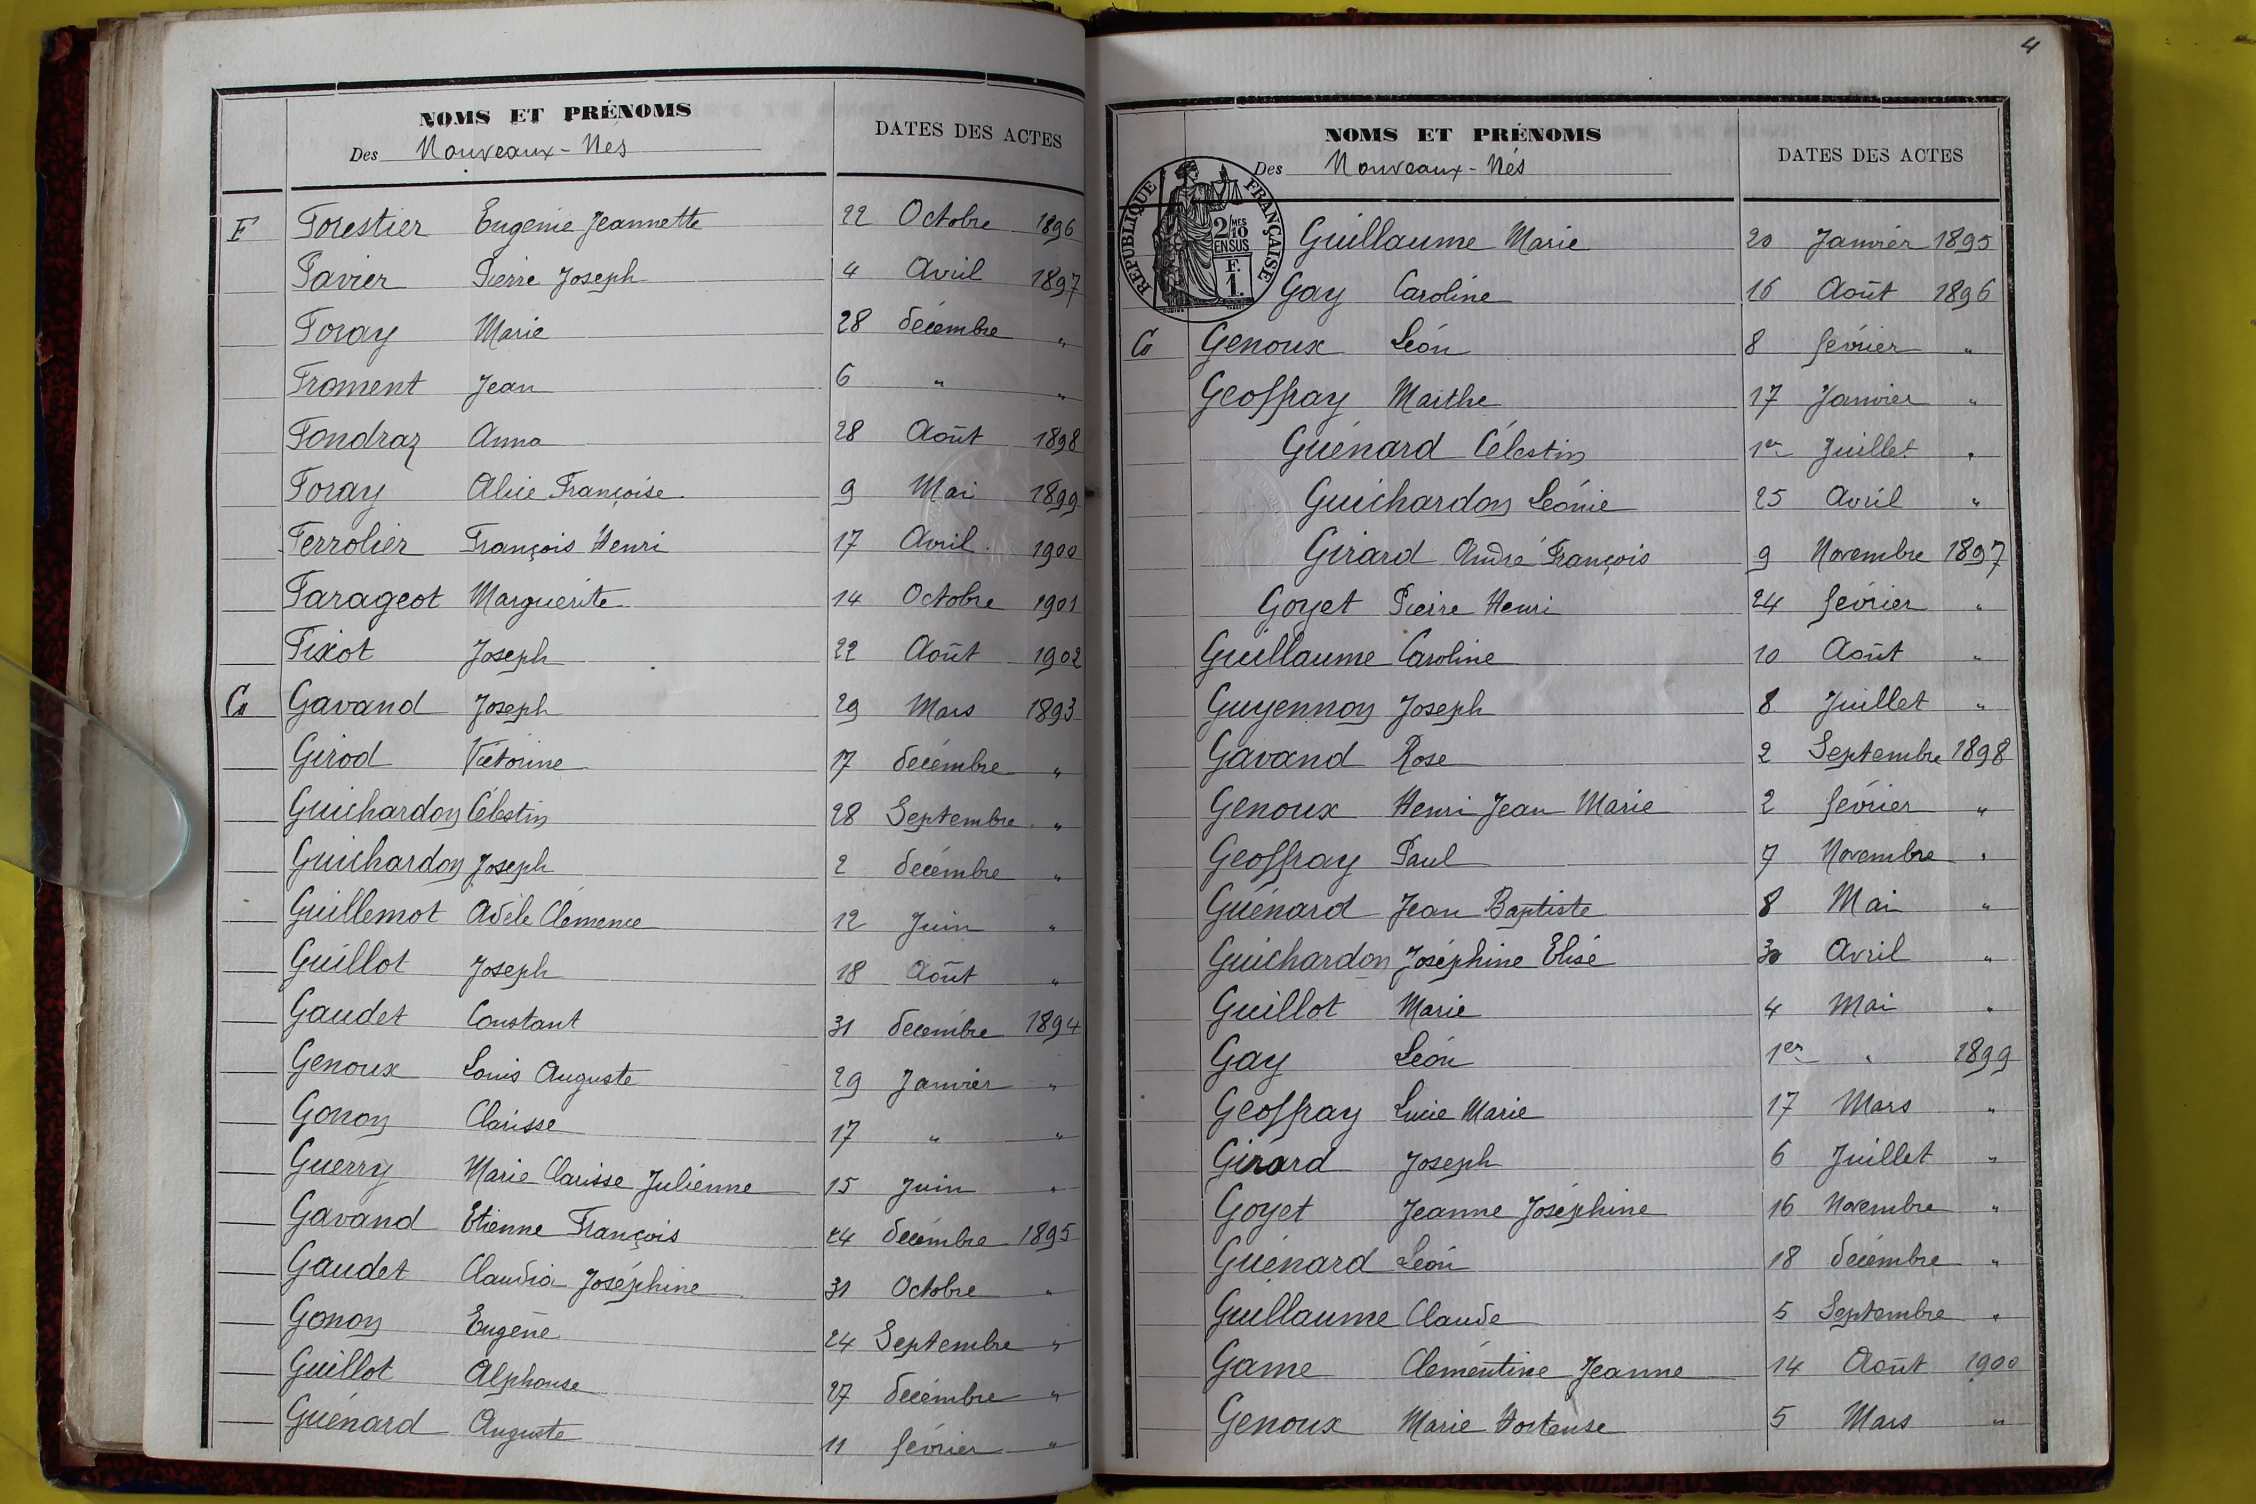 NOMS ET PRÉNOMS
Des Nouveaux-Nés
DATES DES ACTES
F Forestier Eugénie Jeannette 22 Octobre 1896
Favier Pierre Joseph 4 Avril 1897
Foray Marie 28 décembre "
Froment Jean 6 " "
Fondraz Anna 28 Août 1898
Foray Alice Françoise 9 Mai 1899
Ferrolier François Henri 17 Avril 1900
Farageot Marguerite 14 Octobre 1901
Fixot Joseph 22 Août 1902
G Gavand Joseph 29 Mars 1893
Girod Victorine 17 décembre "
Guichardon Célestin 28 Septembre "
Guichardon Joseph 2 décembre "
Guillemot Adèle Clémence 12 Juin "
Guillot Joseph 18 Août "
Gaudet Constant 31 décembre 1894
Genoux Louis Auguste 29 Janvier "
Gonon Clarisse 17 " "
Guerry Marie Clarisse Julienne 15 Juin "
Gavand Etienne François 24 décembre 1895
Gaudet Claudia Joséphine 31 Octobre "
Gonon Eugène 24 Septembre "
Guillot Alphonse 27 décembre "
Guénard Auguste 11 février "
4
NOMS ET PRÉNOMS
Des Nouveaux-Nés
DATES DES ACTES
RÉPUBLIQUE FRANÇAISE
2/10 MES
EN SUS
F.
1.
Guillaume Marie 20 Janvier 1895
Gay Caroline 16 Août 1896
G Genoux Léon 8 février "
Geoffray Marthe 17 Janvier "
Guénard Célestin 1er Juillet "
Guichardon Léonie 25 Avril "
Girard André François 9 Novembre 1897
Goyet Pierre Henri 24 février "
Guillaume Caroline 10 Août "
Guyennon Joseph 8 Juillet "
Gavand Rose 2 Septembre 1898
Genoux Henri Jean Marie 2 février "
Geoffray Paul 7 Novembre "
Guénard Jean Baptiste 8 Mai "
Guichardon Joséphine Elisé 30 Avril "
Guillot Marie 4 Mai "
Gay Léon 1er " 1899
Geoffray Lucie Marie 17 Mars "
Girard Joseph 6 Juillet "
Goyet Jeanne Joséphine 16 Novembre "
Guénard Léon 18 décembre "
Guillaume Claude 5 Septembre "
Game Clémentine Jeanne 14 Août 1900
Genoux Marie Hortense 5 Mars "